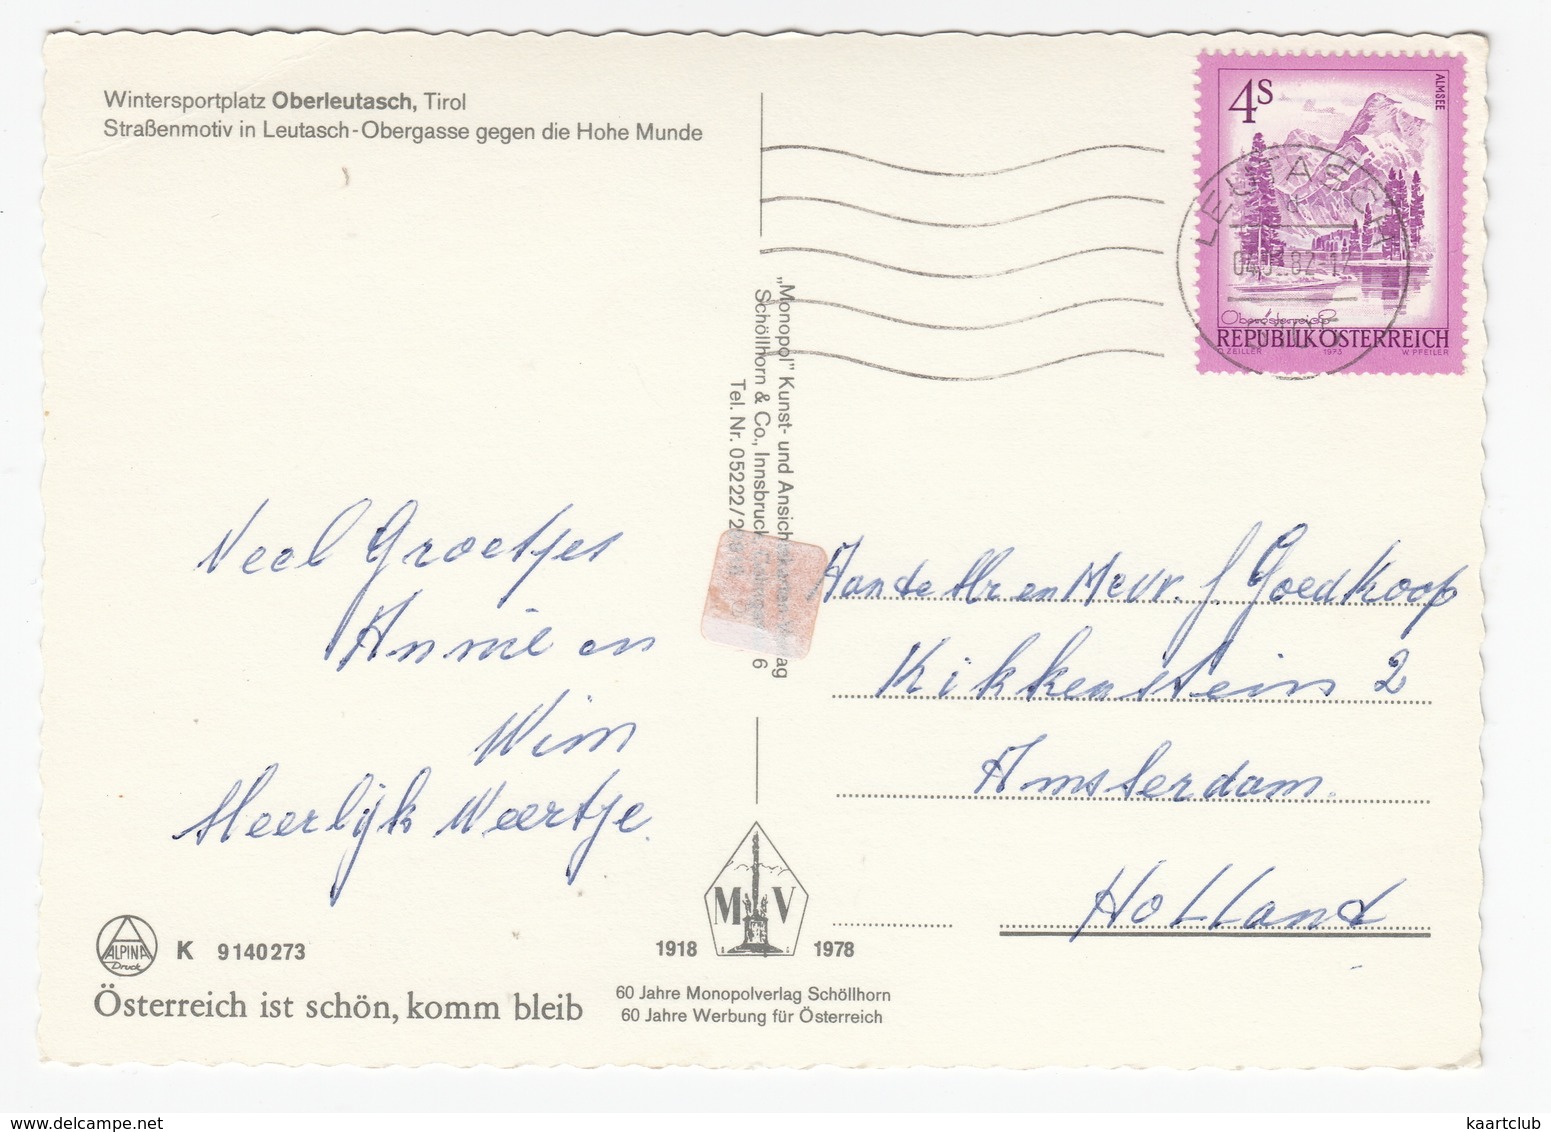 Wintersportplatz Oberleutasch, Tirol
Straßenmotiv in Leutasch-Obergasse gegen die Hohe Munde
4S
ALMSEE
LEUTASCH
82-17
Oberösterreich
REPUBLIK ÖSTERREICH
O. ZEILLER 1973 W. PFEILER
„Monopol" Kunst- und
Schöllhorn & Co., Innsbruck
6
Tel. Nr. 05222/2
Veel Groetjes
Annie en
Wim
Heerlijk Weertje.
Aan de Hr en Mevr. J Goedkoop
Kikkenstein 2
Amsterdam.
Holland
ALPINA
Druck
K 9140273
Österreich ist schön, komm bleib
M V
1918 1978
60 Jahre Monopolverlag Schöllhorn
60 Jahre Werbung für Österreich
www.delcampe.net
kaartclub